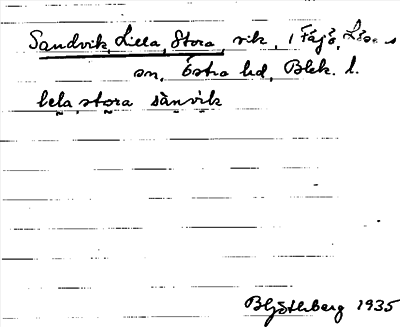 Sandvik, Lilla, Stora, vik, i Fäjö, Lös. s
sn, Östra hd, Blek. l.
lela, stora sànvik
1935